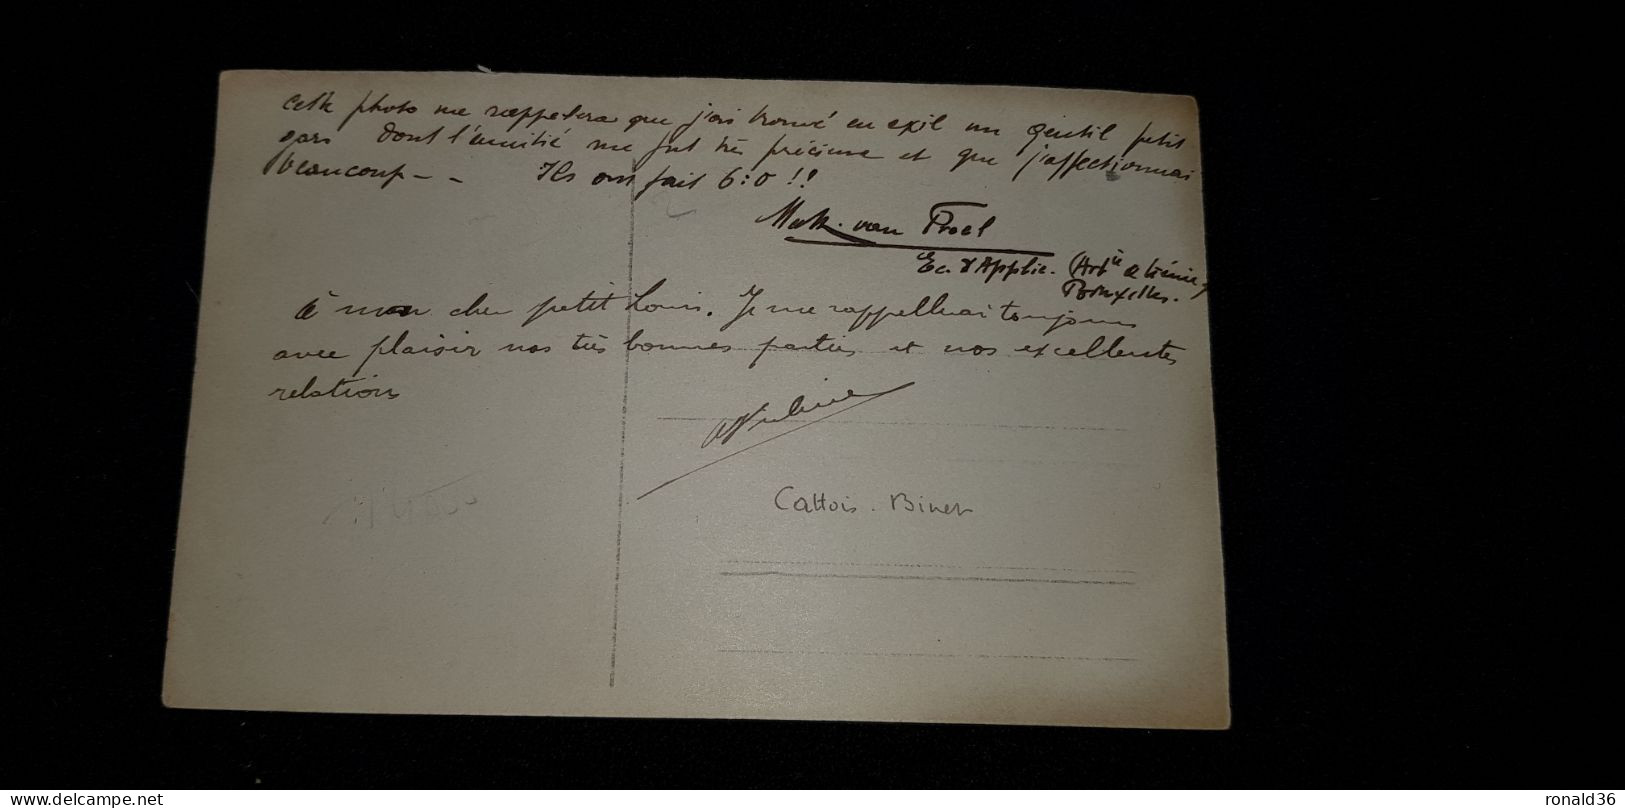 cette photo me rappelera que j'ai trouvé en exil un gentil petit
gars dont l'amitié me fut très précieuse et que j'affectionnai
beaucoup - - Ils ont fait 6:0 !!
van
Ec. d'Applic. (Art^ie & Génie)
Bruxelles.
à mon cher petit Louis. Je me rappellerai toujours
avec plaisir nos très bonnes parties et nos excellentes
relations
Cattois. Biner
delcampe.net
ronald36